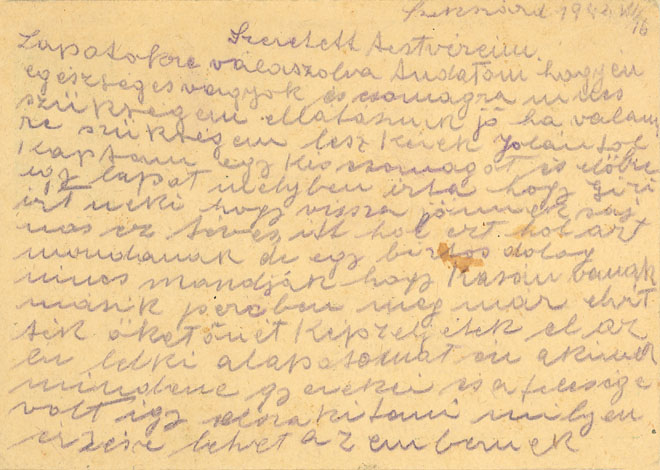 Szekszárd 194 VII/16
Szeretett testvéreim
Lapotokra válaszolva tudatom hogy én
egészséges vagyok és csomagra nincs
szükségem ellátásunk jó ha valami
re szükségem lesz kérek Jolántol
kaptam egy kis csomagot és előbb
egy lapot melyben írta hogy
irt neki hogy vissza jönnek saj
nos ez téves itt hol ezt hol azt
mondanak de egy biztos dolog
nincs mondják hogy Kassán vannak
másik percben meg már elvit
ték őket képzeljétek el az
én lelki alapotomat én akinek
mindene gyerekei és a felesége
volt igy elszakitani milyen
érzése lehet az embernek